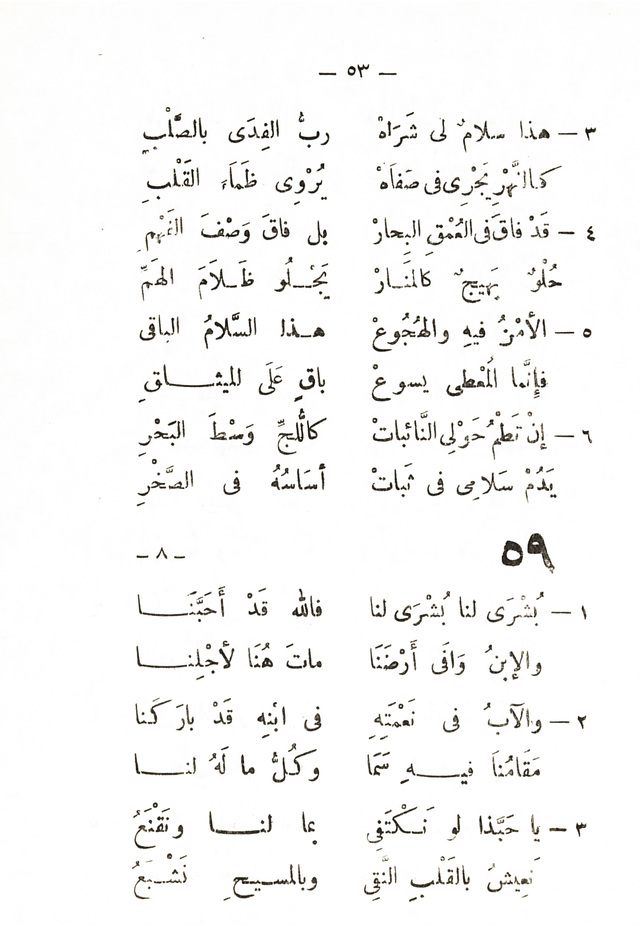 — ٥٣ —
٣ — هذا سلامٌ لى شَرَاهْ ربُّ الفِدَى بالصَّلْبِ
كالنَّهْرِ يَجْرِى فى صفَاهْ يُرْوِى ظَمَاءَ القَلْبِ
٤ — قَدْ فاقَ فى العُمْقِ البِحارْ بل فاقَ وَصْفَ الفَهْمِ
حُلْوٌ بَهيجٌ كالمَنَارْ يَجْلُو ظَلَامَ الهَمِّ
٥ — الأمْنُ فيهِ والهُجُوعْ هذا السَّلامُ الباقى
فإنَّما المُعْطى يسوعْ باقٍ عَلَى الميثاقِ
٦ — إنْ تَطْمُ حَوْلِى النَّائباتْ كاللُّجِّ وَسْطَ البَحْرِ
يَدُمْ سَلامِى فى ثَباتْ أسَاسُهُ فى الصَّخْرِ
٥٩ — ٨ —
١ — بُشْرَى لنا بُشْرَى لنا فالله قَدْ أَحَبَّنَا
والإبنُ وَافَى أَرْضَنَا ماتَ هُنَا لأجْلِنا
٢ — والآبُ فى نَعْمَتِهِ فى ابْنِهِ قَدْ بارَكَنا
مَقَامُنا فيهِ سَمَا وكُلُّ ما لَهُ لنا
٣ — يا حَبَّذا لو نَكْتَفِى بما لنا ونَقْنَعُ
نَعِيشُ بالقَلْبِ النَّقِى وبالمسيحِ نَشْبَعُ